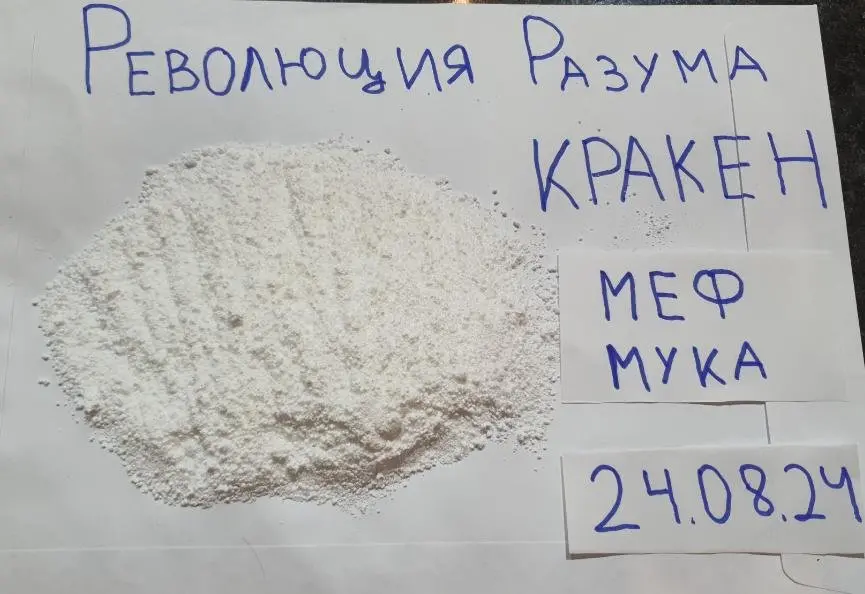 Революция Разума
КРАКЕН
МЕФ
МУКА
24.08.24